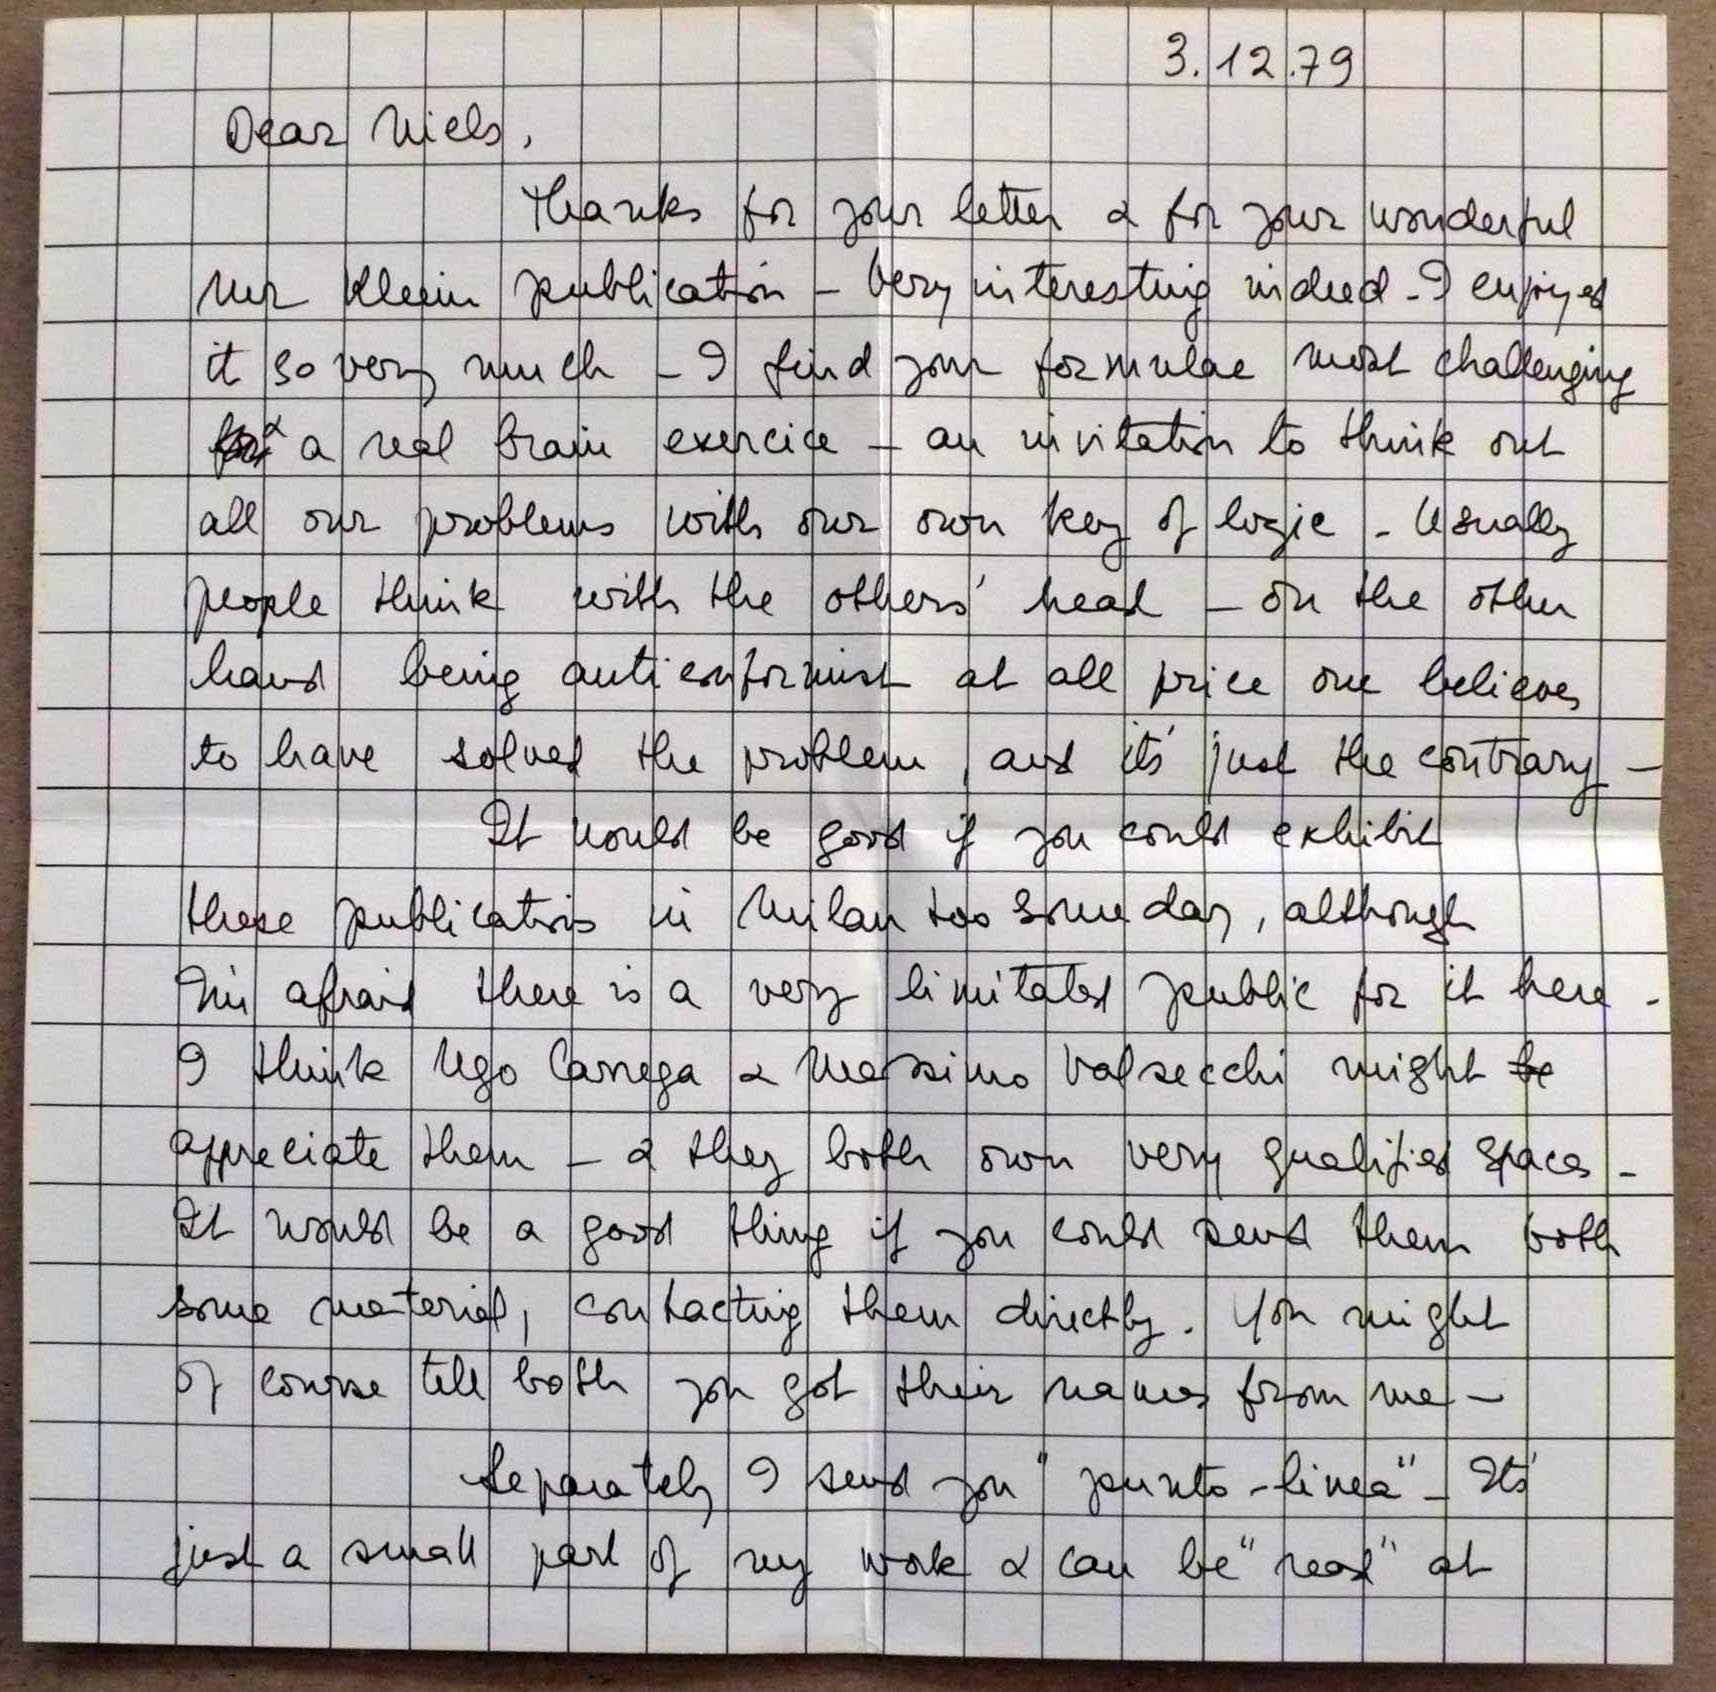 3.12.79
Dear Niels,
Thanks for your letter & for your wonderful
nur Klein publication – Very interesting indeed – I enjoyed
it so very much – I find your formulae most challenging
& a real brain exercice – an invitation to think out
all our problems with our own key of logic – Usually
people think with the others' head – on the other
hand being anticonformist at all price one believes
to have solved the problem, and its' just the contrary –
It would be good if you could exhibit
these publications in Milan too some day, although
I'm afraid there is a very limitated public for it here –
I think Ugo Carrega & Massimo Valsecchi might be
appreciate them – & they both own very qualified spaces –
It would be a good thing if you could send them both
some material, contacting them directly. You might
of course tell both you got their names from me –
Separately I send you "punto-linea" – Its'
just a small part of my work & can be "read" at